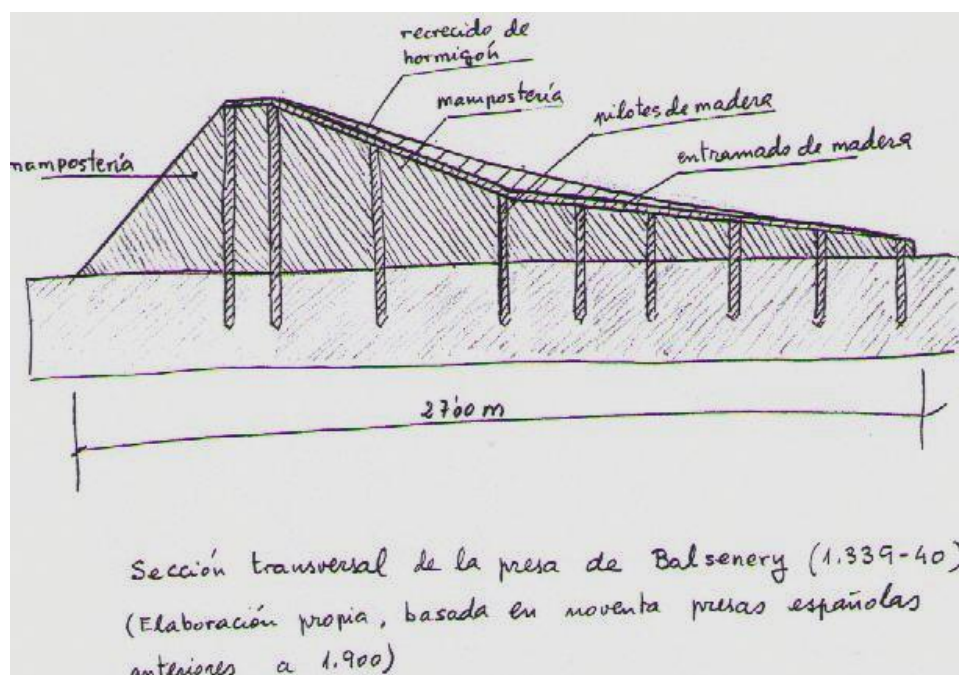 recrecido de
hormigón
mampostería
pilotes de madera
entramado de madera
mampostería
27'00 m
Sección transversal de la presa de Balsereny (1.339-40)
(Elaboración propia, basada en noventa presas españolas
anteriores a 1.900)